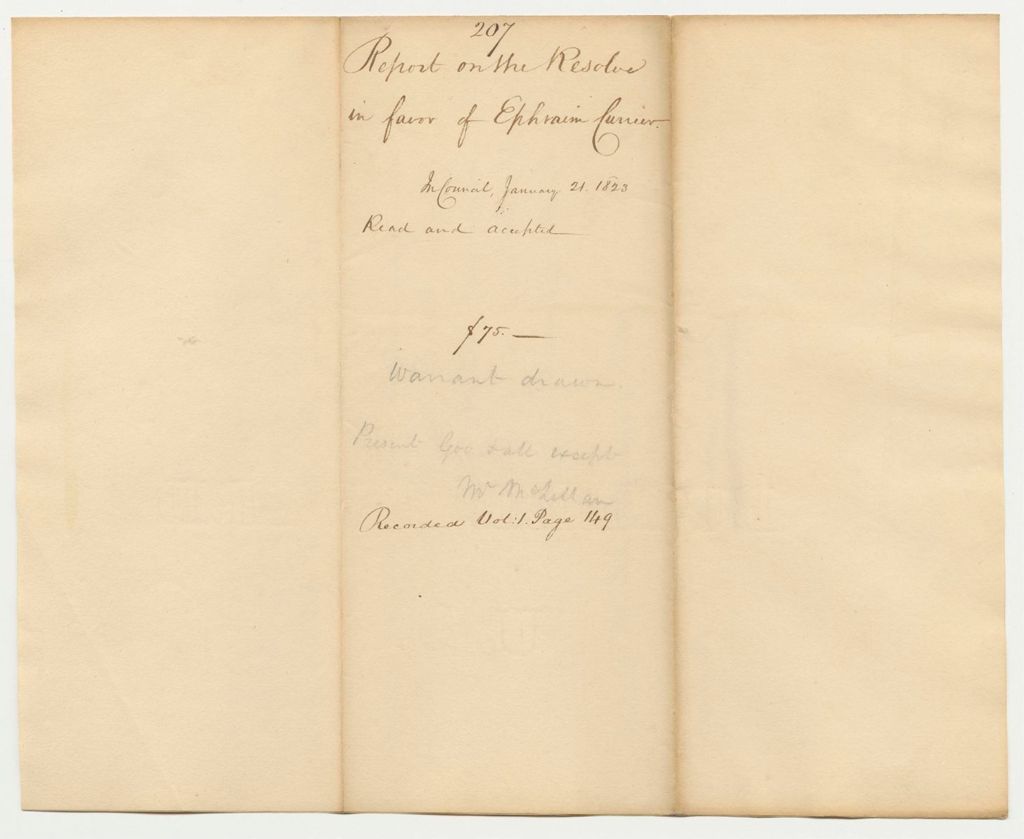 207
Report on the Resolve
in favor of Ephraim Currier.
In Council, January 21. 1823
Read and accepted
$75.—
Warrant drawn.
Present Gov & all except
Mr McLellan
Recorded Vol: 1. Page 149